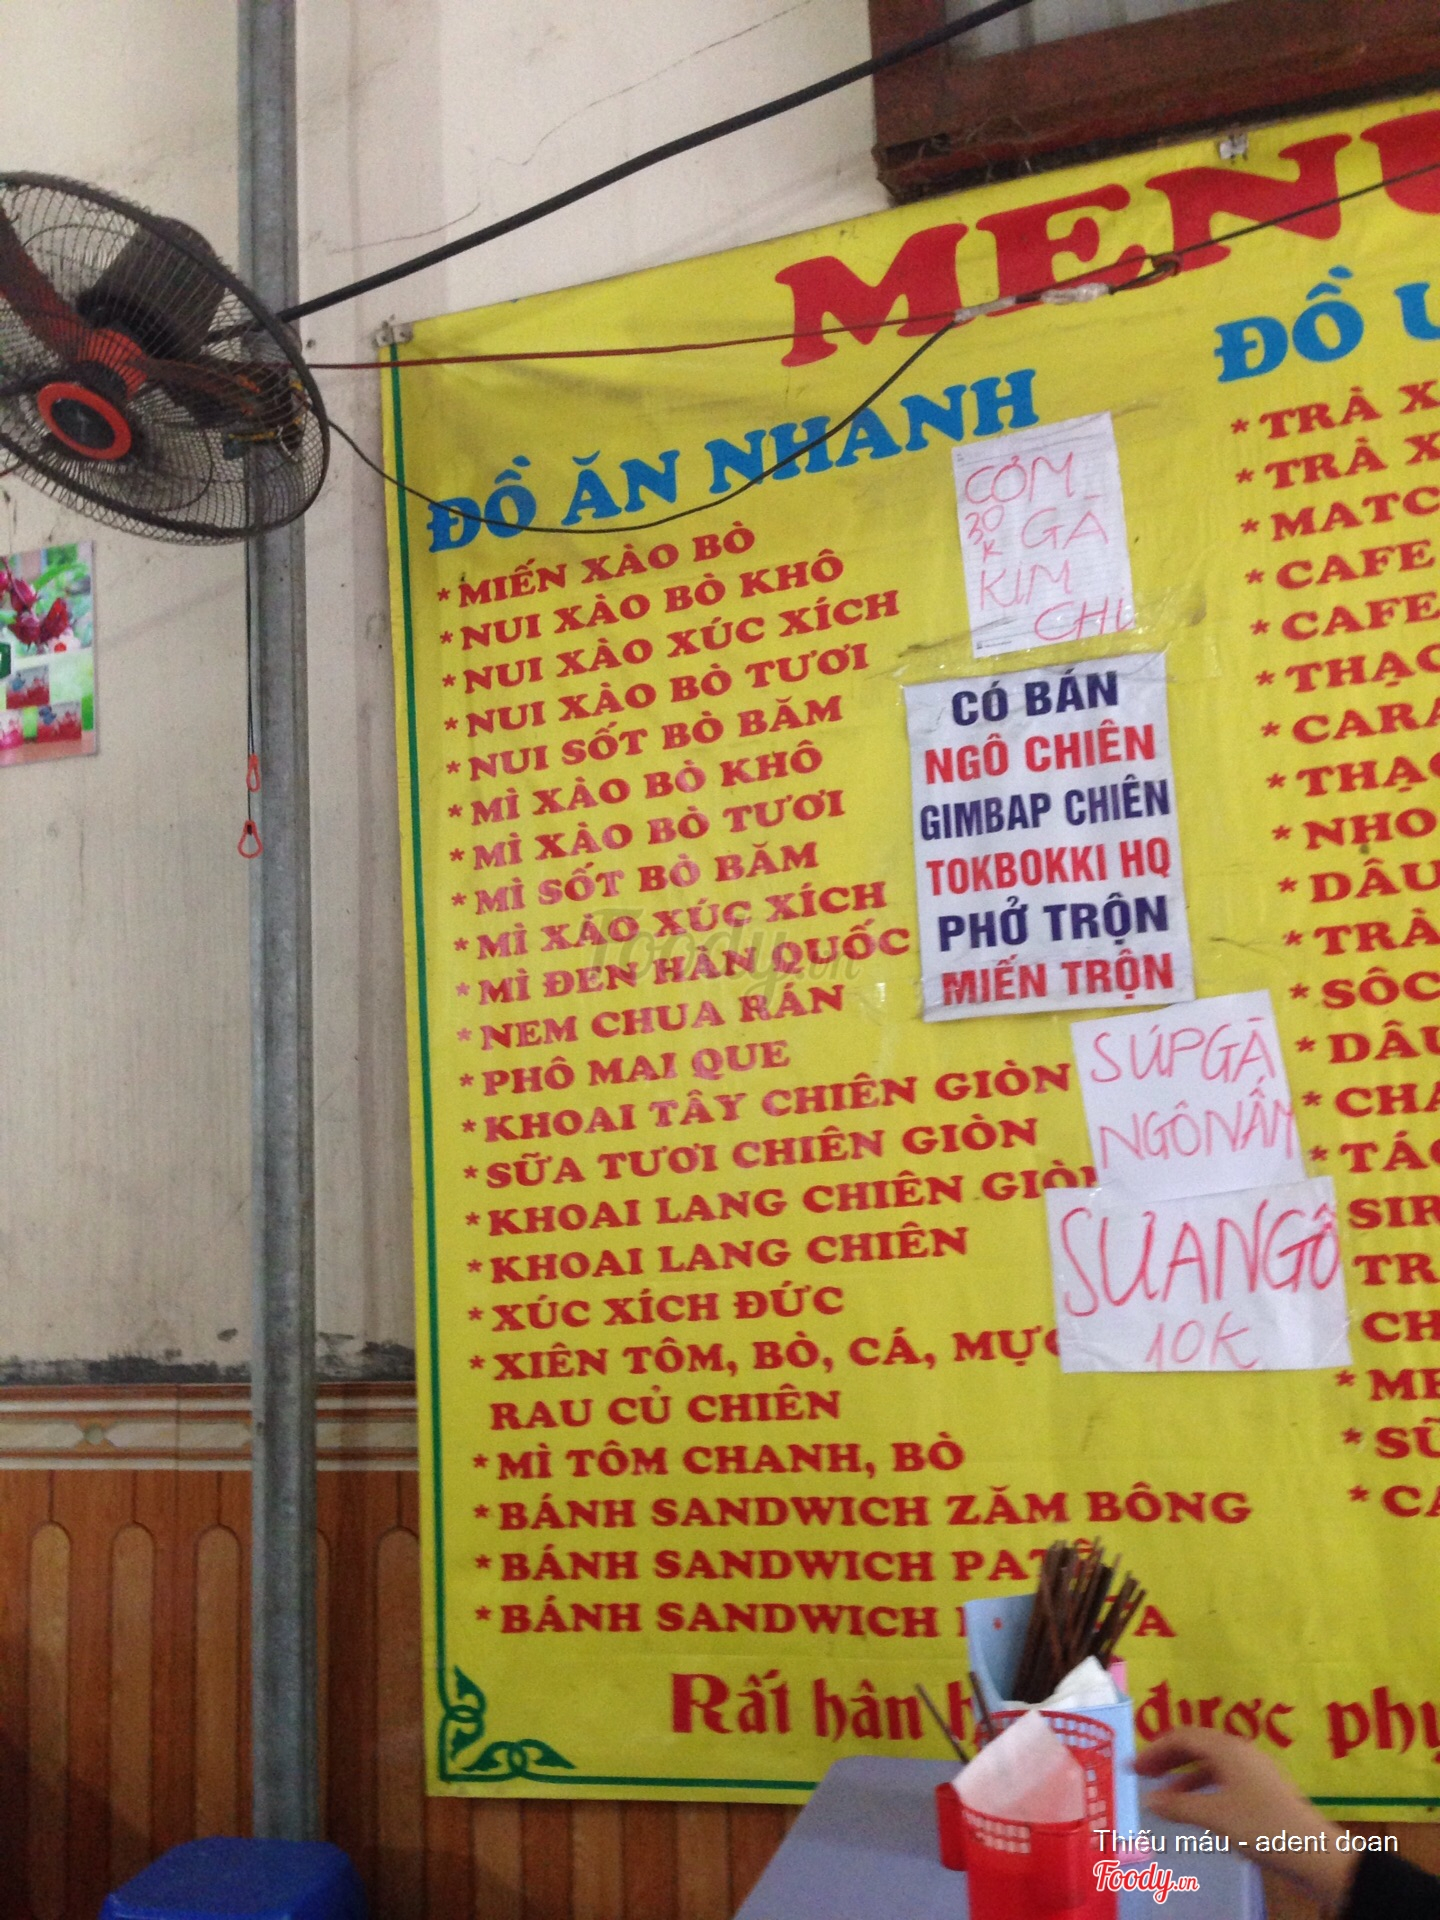 MENU
ĐỒ ĂN NHANH
* MIẾN XÀO BÒ
* NUI XÀO BÒ KHÔ
* NUI XÀO XÚC XÍCH
* NUI XÀO BÒ TƯƠI
* NUI SỐT BÒ BĂM
* MÌ XÀO BÒ KHÔ
* MÌ XÀO BÒ TƯƠI
* MÌ SỐT BÒ BĂM
* MÌ XÀO XÚC XÍCH
* MÌ ĐEN HÀN QUỐC
* NEM CHUA RÁN
* PHÔ MAI QUE
* KHOAI TÂY CHIÊN GIÒN
* SỮA TƯƠI CHIÊN GIÒN
* KHOAI LANG CHIÊN GIÒN
* KHOAI LANG CHIÊN
* XÚC XÍCH ĐỨC
* XIÊN TÔM, BÒ, CÁ, MỰC
RAU CỦ CHIÊN
* MÌ TÔM CHANH, BÒ
* BÁNH SANDWICH ZĂM BÔNG
* BÁNH SANDWICH PATÊ
* BÁNH SANDWICH
CƠM
30K GÀ
KIM
CHI
CÓ BÁN
NGÔ CHIÊN
GIMBAP CHIÊN
TOKBOKKI HQ
PHỞ TRỘN
MIẾN TRỘN
SÚP GÀ
NGÔ NẤM
SỮA NGÔ
10K
ĐỒ U
* TRÀ X
* TRÀ X
* MATC
* CAFE
* CAFE
* THẠC
* CARA
* THẠC
* NHO
* DÂU
* TRÀ
* SÔC
* DÂU
* CHA
* TÁO
SIR
TR
CH
* ME
* SỮ
* CA
Rất hân h được phụ
Foody.vn
Thiếu máu - adent doan
Foody.vn